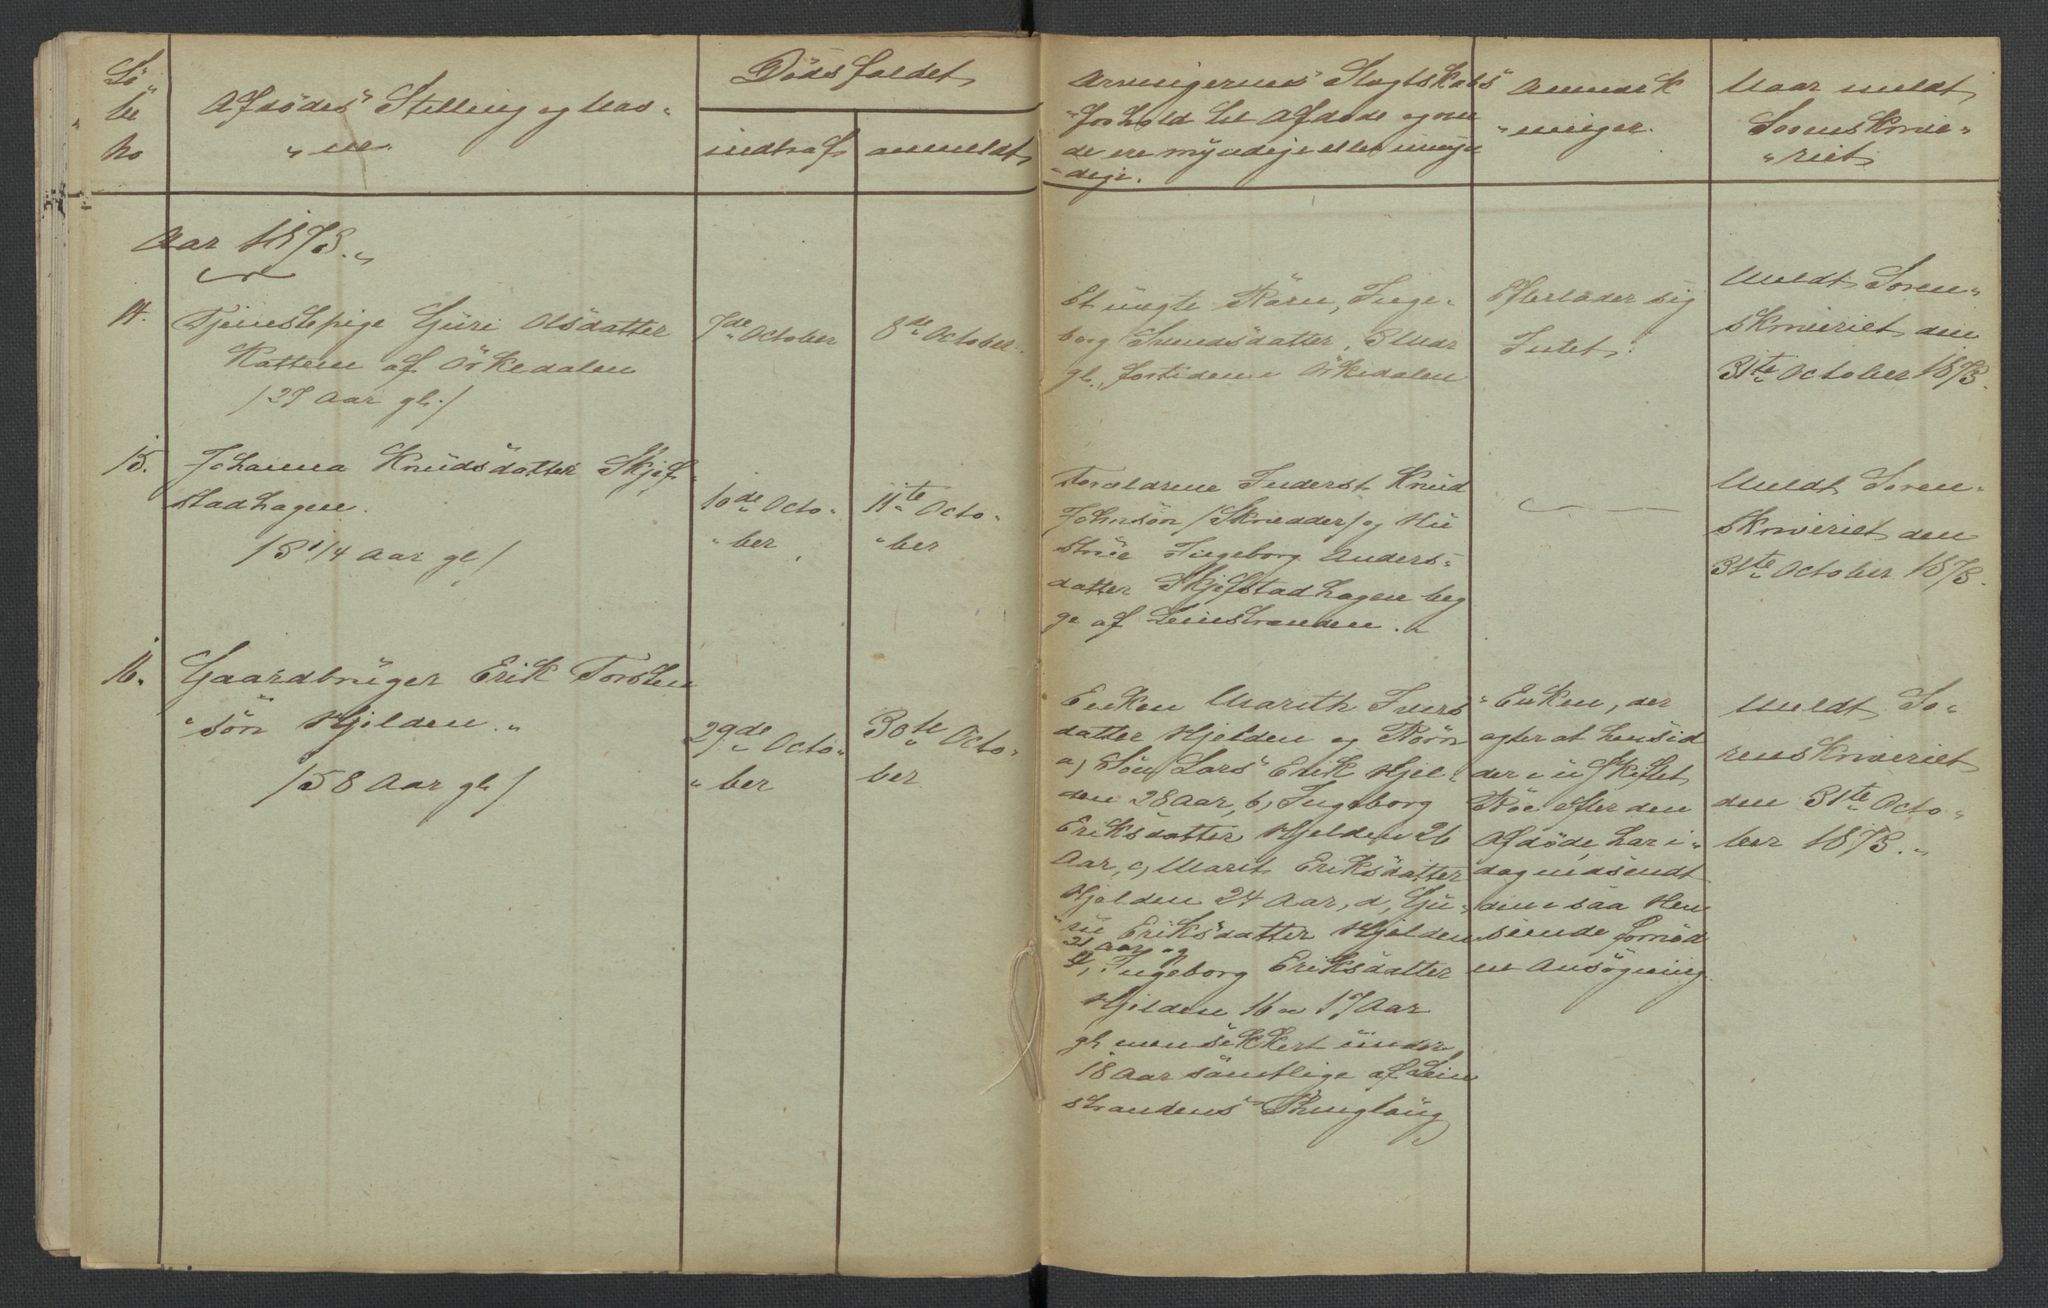 Lö
be
no
Afdödes Stilling og Nav-
"ne
Dödsfaldet
indtraf
anmeldt
Arvingernes Slegtskabs
"forhold til Afdøde og om
de ere myndige eller umyn
"dige.
Anmærk
"ninger.
Naar meldt
Sorenskrive-
"riet
Aar 1873.
14.
Tjenestepige Guri Olsdatter
Kattem af Örkedalen
/27 Aar gl./
7de October
8de October
Et uægte Barn, Inge-
borg Svendsdatter, 3 Aar
gl., fortiden i Örkedalen
Efterlader sig
Intet.
Meldt Soren-
skriveriet den
31te October 1873.
15.
Johanna Knudsdatter Skjef-
stadhagen.
/3 1/4 Aar gl/
10de Octo-
"ber
11te Octo-
"ber
Forældrene Inderst Knud
Johnsön /Skredder/ og Hu
strue Ingeborg Anders-
datter Skjefstadhagen beg
ge af Leinstranden.
Meldt Soren-
skriveriet den
31te October 1873.
16.
Gaardbruger Erik Torsten
"sön Hjelden.
/58 Aar gl/
29de Octo-
"ber
30te Octo-
ber
Enken Marith Ivers
datter Hjelden og Börn
a, Sön Lars Erik Hjel-
den 28 Aar, b, Ingeborg
Eriksdatter Hjelden 26
Aar, c, Marit Eriksdatter
Hjelden 24 Aar, d, Gu-
"ru Eriksdatter Hjelden
21 Aar og
e, Ingeborg Eriksdatter
Hjelden 16 a 17 Aar
gl men sikkert under
18 Aar samtlige af Lein
strandens Thinglaug
"Enken, der
agter at hensid
der i uskiftet
Boe efter den
Afdöde, har i-
dag indsendt
den i saa Hen
seende fornöd
ne Ansögning.
Meldt So-
renskriveriet
den 31te Octo-
ber 1873.